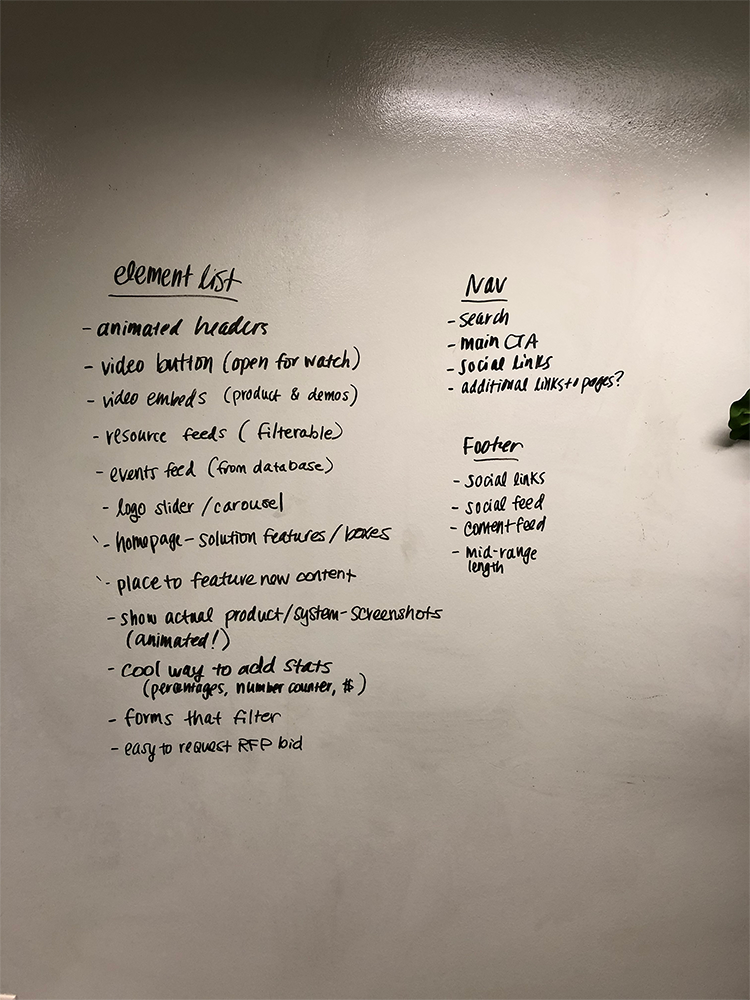 element list
- animated headers
- video button (open for watch)
- video embeds (product & demos)
- resource feeds (filterable)
- events feed (from database)
- logo slider / carousel
- homepage - solution features / boxes
- place to feature new content
- show actual product/system-screenshots
(animated!)
- cool way to add stats
(percentages, number counter, $)
- forms that filter
- easy to request RFP bid
Nav
- search
- main CTA
- social links
- additional links to pages?
Footer
- social links
- social feed
- content feed
- mid-range
length